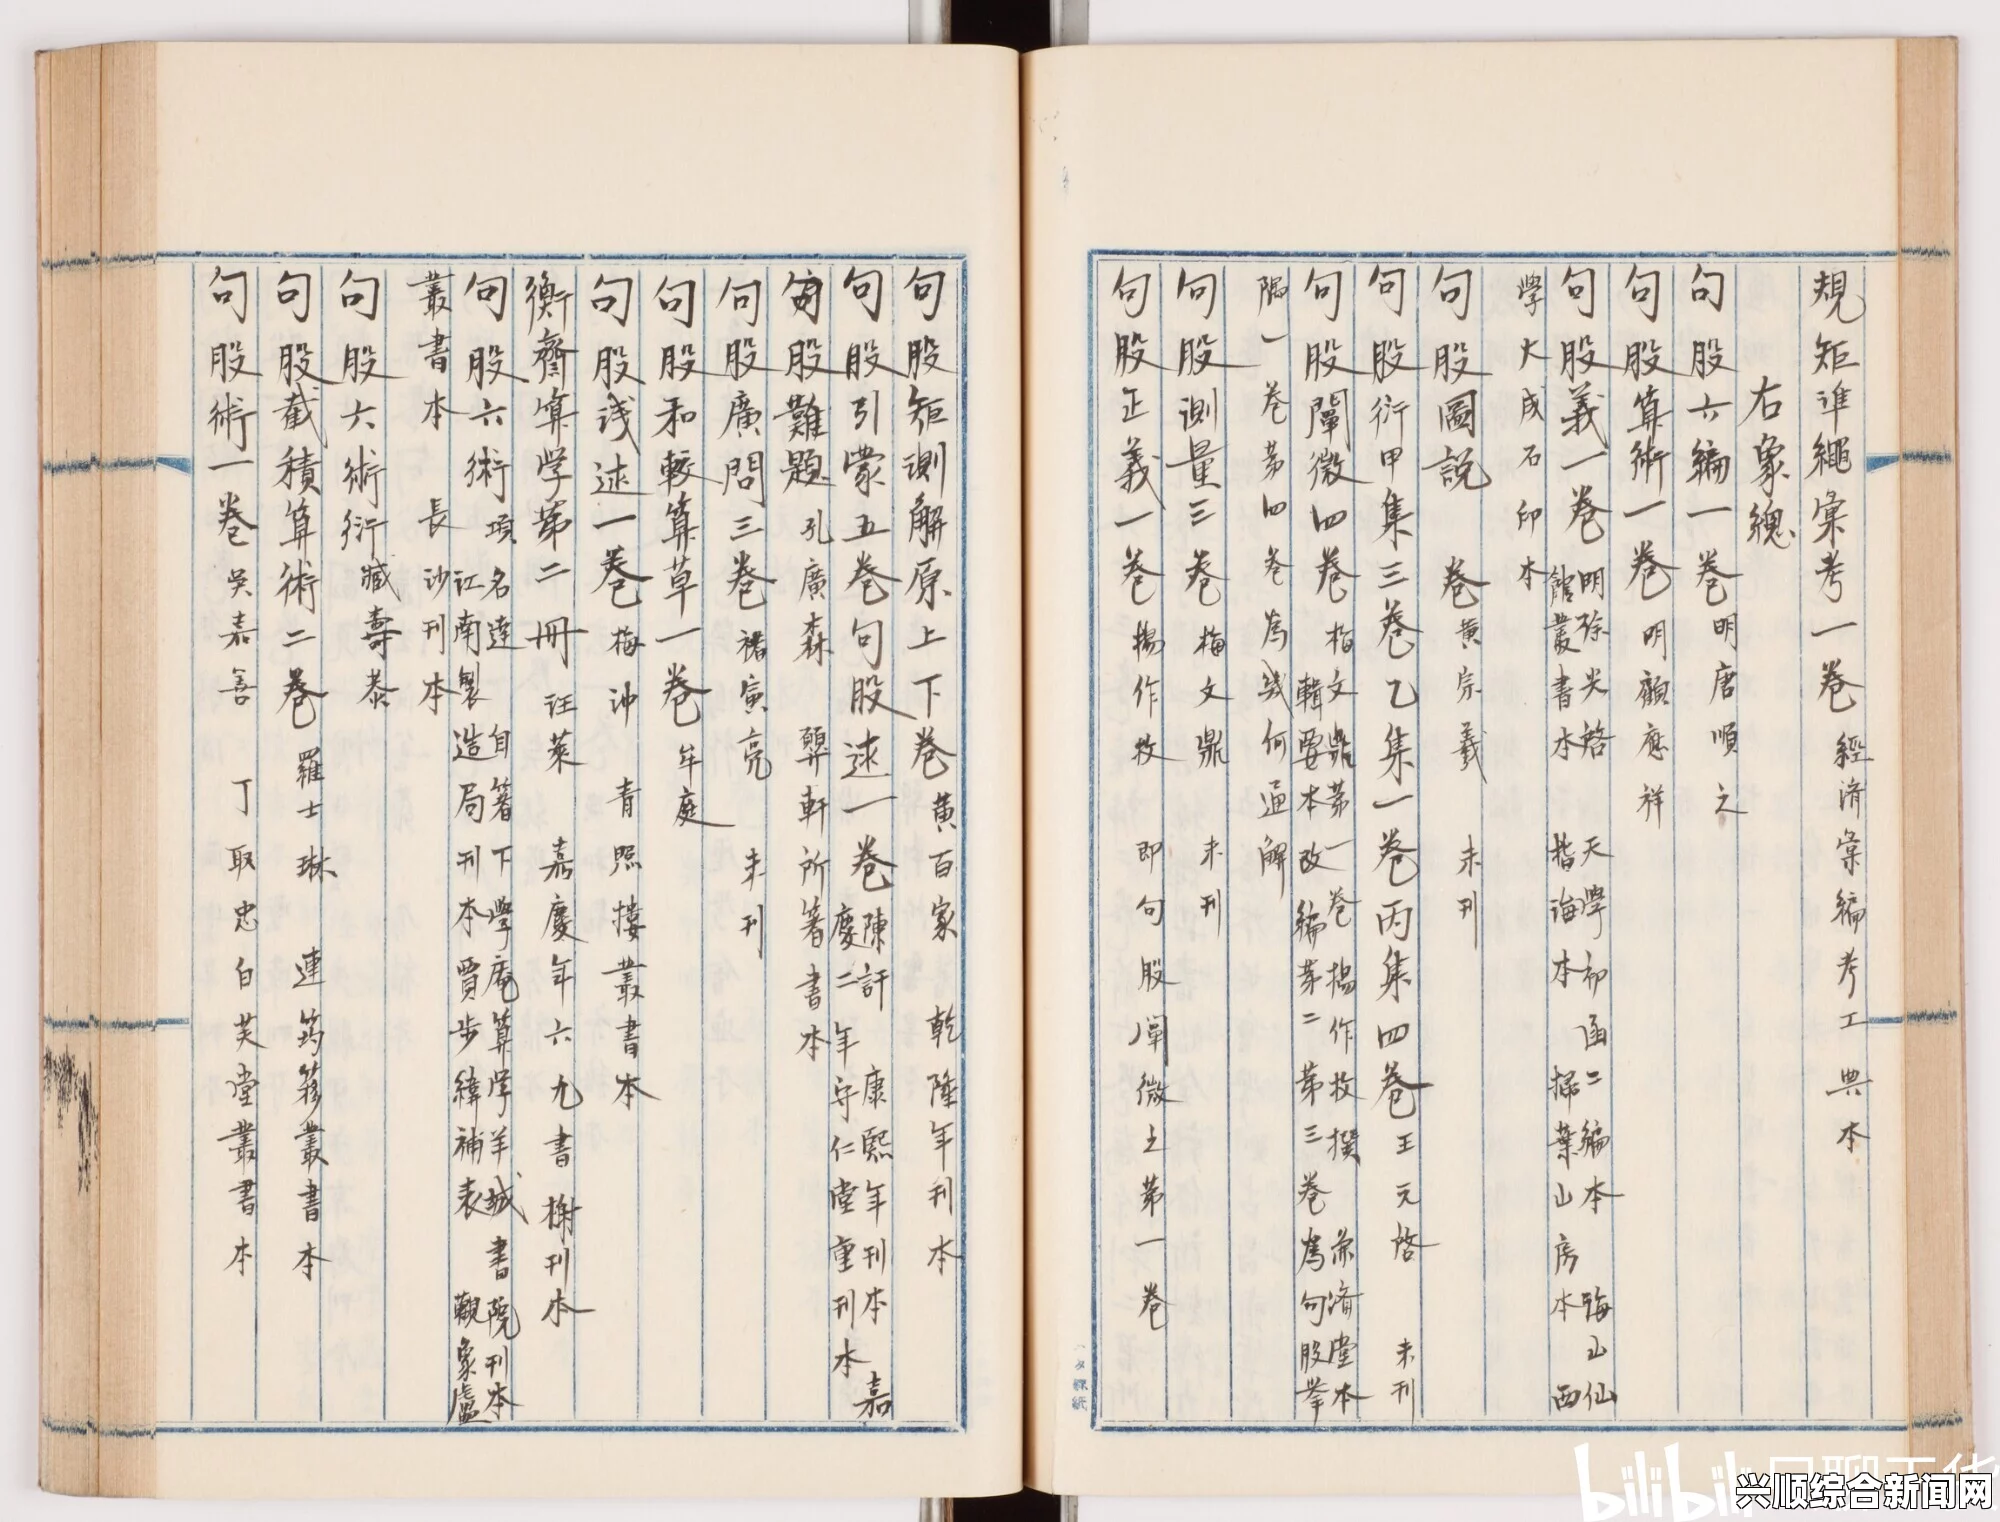 規矩準繩彙考一卷 經濟彙編考工典本
右象總
句股六編一卷 明唐順之
句股算術一卷 明顧應祥
句股義一卷 明徐光啓 天學初函二編本 海山仙館叢書本 指海本 掃葉山房本 西
學大成石印本
句股圖説 卷 黃宗羲 未刊
句股衍甲集三卷乙集一卷丙集四卷 王元啓 未刊
句股闡微四卷 梅文鼎 第一卷楊作枚撰 兼濟堂本 輯要本改編第二第三卷為句股舉
隅一卷第四卷為幾何通解
句股測量三卷 梅文鼎 未刊
句股正義一卷 楊作枚 即句股闡微之第一卷
句股矩測解原上下卷 黃百家 乾隆年刊本
句股引蒙五卷句股述一卷 陳訏 康熙年刊本 嘉慶二年守仁堂重刊本
句股難題 孔廣森 顨軒所著書本
句股廣問三卷 褚寅亮 未刊
句股和較算草一卷 牟庭
句股淺述一卷 梅冲 青照樓叢書本
衡齋算学第二冊 汪萊 嘉慶年六九書榭刊本
句股六術 項名達 自著下學庵算学羊城書院刊本 江南製造局刊本 賈步緯補表 觀象廬
叢書本 長沙刊本
句股六術衍 臧壽恭
句股截積算術二卷 羅士琳 連筠簃叢書本
句股術一卷 吳嘉善 丁取忠白芙堂叢書本
bilibili
兴顺综合新闻网